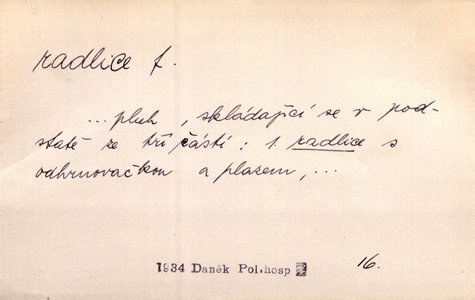 radlice f.
...pluh , skládající se v pod-
statě ze tří částí : 1. radlice s
odhrnovačkou a plazem, ...
1934 Daněk Pol.hosp
16.